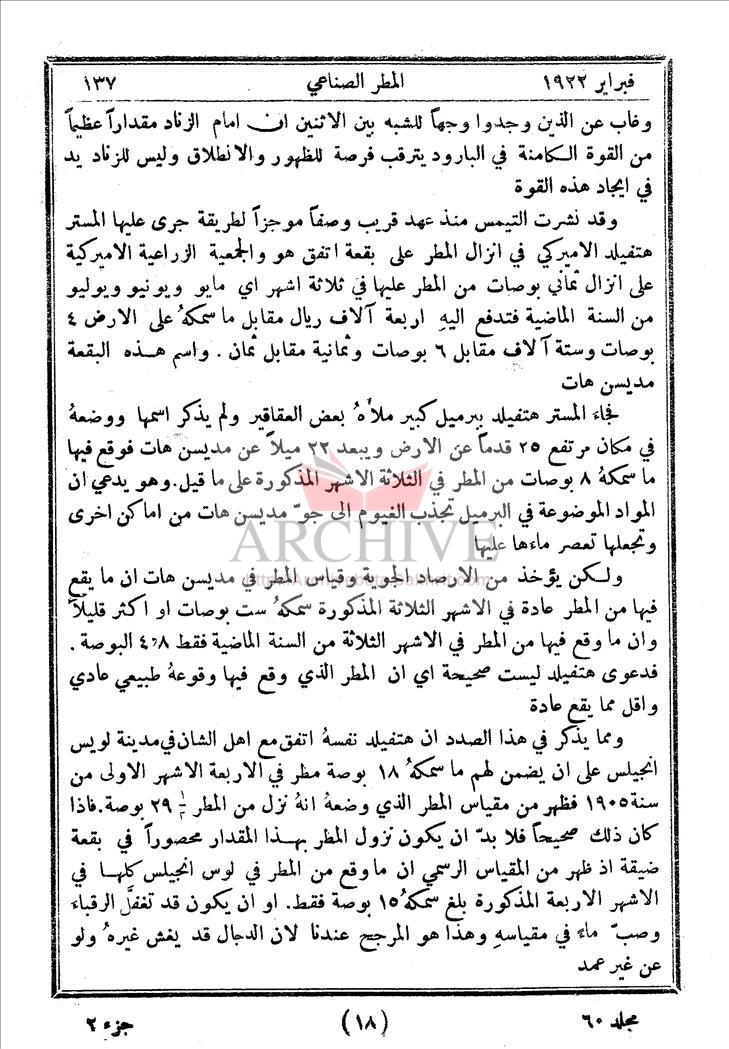 فبراير ١٩٢٢ المطر الصناعي ١٣٧
وغاب عن الذين وجدوا وجهاً للشبه بين الاثنين ان امام الزناد مقداراً عظيماً
من القوة الكامنة في البارود يترقب فرصة للظهور والانطلاق وليس للزناد يد
في ايجاد هذه القوة
وقد نشرت التيمس منذ عهد قريب وصفاً موجزاً لطريقة جرى عليها المستر
هتفيلد الاميركي في انزال المطر على بقعة اتفق هو والجمعية الزراعية الاميركية
على انزال ثماني بوصات من المطر عليها في ثلاثة اشهر اي مايو ويونيو ويوليو
من السنة الماضية فتدفع اليهِ اربعة آلاف ريال مقابل ما سمكهُ على الارض ٤
بوصات وستة آلاف مقابل ٦ بوصات وثمانية مقابل ثمان . واسم هذه البقعة
مديسن هات
فجاءَ المستر هتفيلد ببرميل كبير ملأهُ بعض العقاقير ولم يذكر اسمها ووضعهُ
في مكان مرتفع ٢٥ قدماً عن الارض ويبعد ٢٢ ميلاً عن مديسن هات فوقع فيها
ما سمكهُ ٨ بوصات من المطر في الثلاثة الاشهر المذكورة على ما قيل. وهو يدعي ان
المواد الموضوعة في البرميل تجذب الغيوم الى جوّ مديسن هات من اماكن اخرى
وتجعلها تعصر ماءَها عليها
ARCHIVE
ولكن يؤخذ من الارصاد الجوية وقياس المطر في مديسن هات ان ما يقع
فيها من المطر عادة في الاشهر الثلاثة المذكورة سمكهُ ست بوصات او اكثر قليلاً
وان ما وقع فيها من المطر في الاشهر الثلاثة من السنة الماضية فقط ٤٫٨ البوصة .
فدعوى هتفيلد ليست صحيحة اي ان المطر الذي وقع فيها وقوعهُ طبيعي عادي
واقل مما يقع عادة
ومما يذكر في هذا الصدد ان هتفيلد نفسهُ اتفق مع اهل الشان في مدينة لويس
انجيلس على ان يضمن لهم ما سمكهُ ١٨ بوصة مطر في الاربعة الاشهر الاولى من
سنة ١٩٠٥ فظهر من مقياس المطر الذي وضعهُ انهُ نزل من المطر ٢٩ بوصة. فاذا
كان ذلك صحيحاً فلا بدّ ان يكون نزول المطر بهذا المقدار محصوراً في بقعة
ضيقة اذ ظهر من المقياس الرسمي ان ما وقع من المطر في لوس انجيلس كلها في
الاشهر الاربعة المذكورة بلغ سمكهُ ١٥ بوصة فقط. او ان يكون قد تغفَّل الرقباءَ
وصبّ ماءً في مقياسهِ وهذا هو المرجح عندنا لان الدجال قد يغش غيرهُ ولو
عن غير عمد
مجلد ٦٠ (١٨) جزء ٢